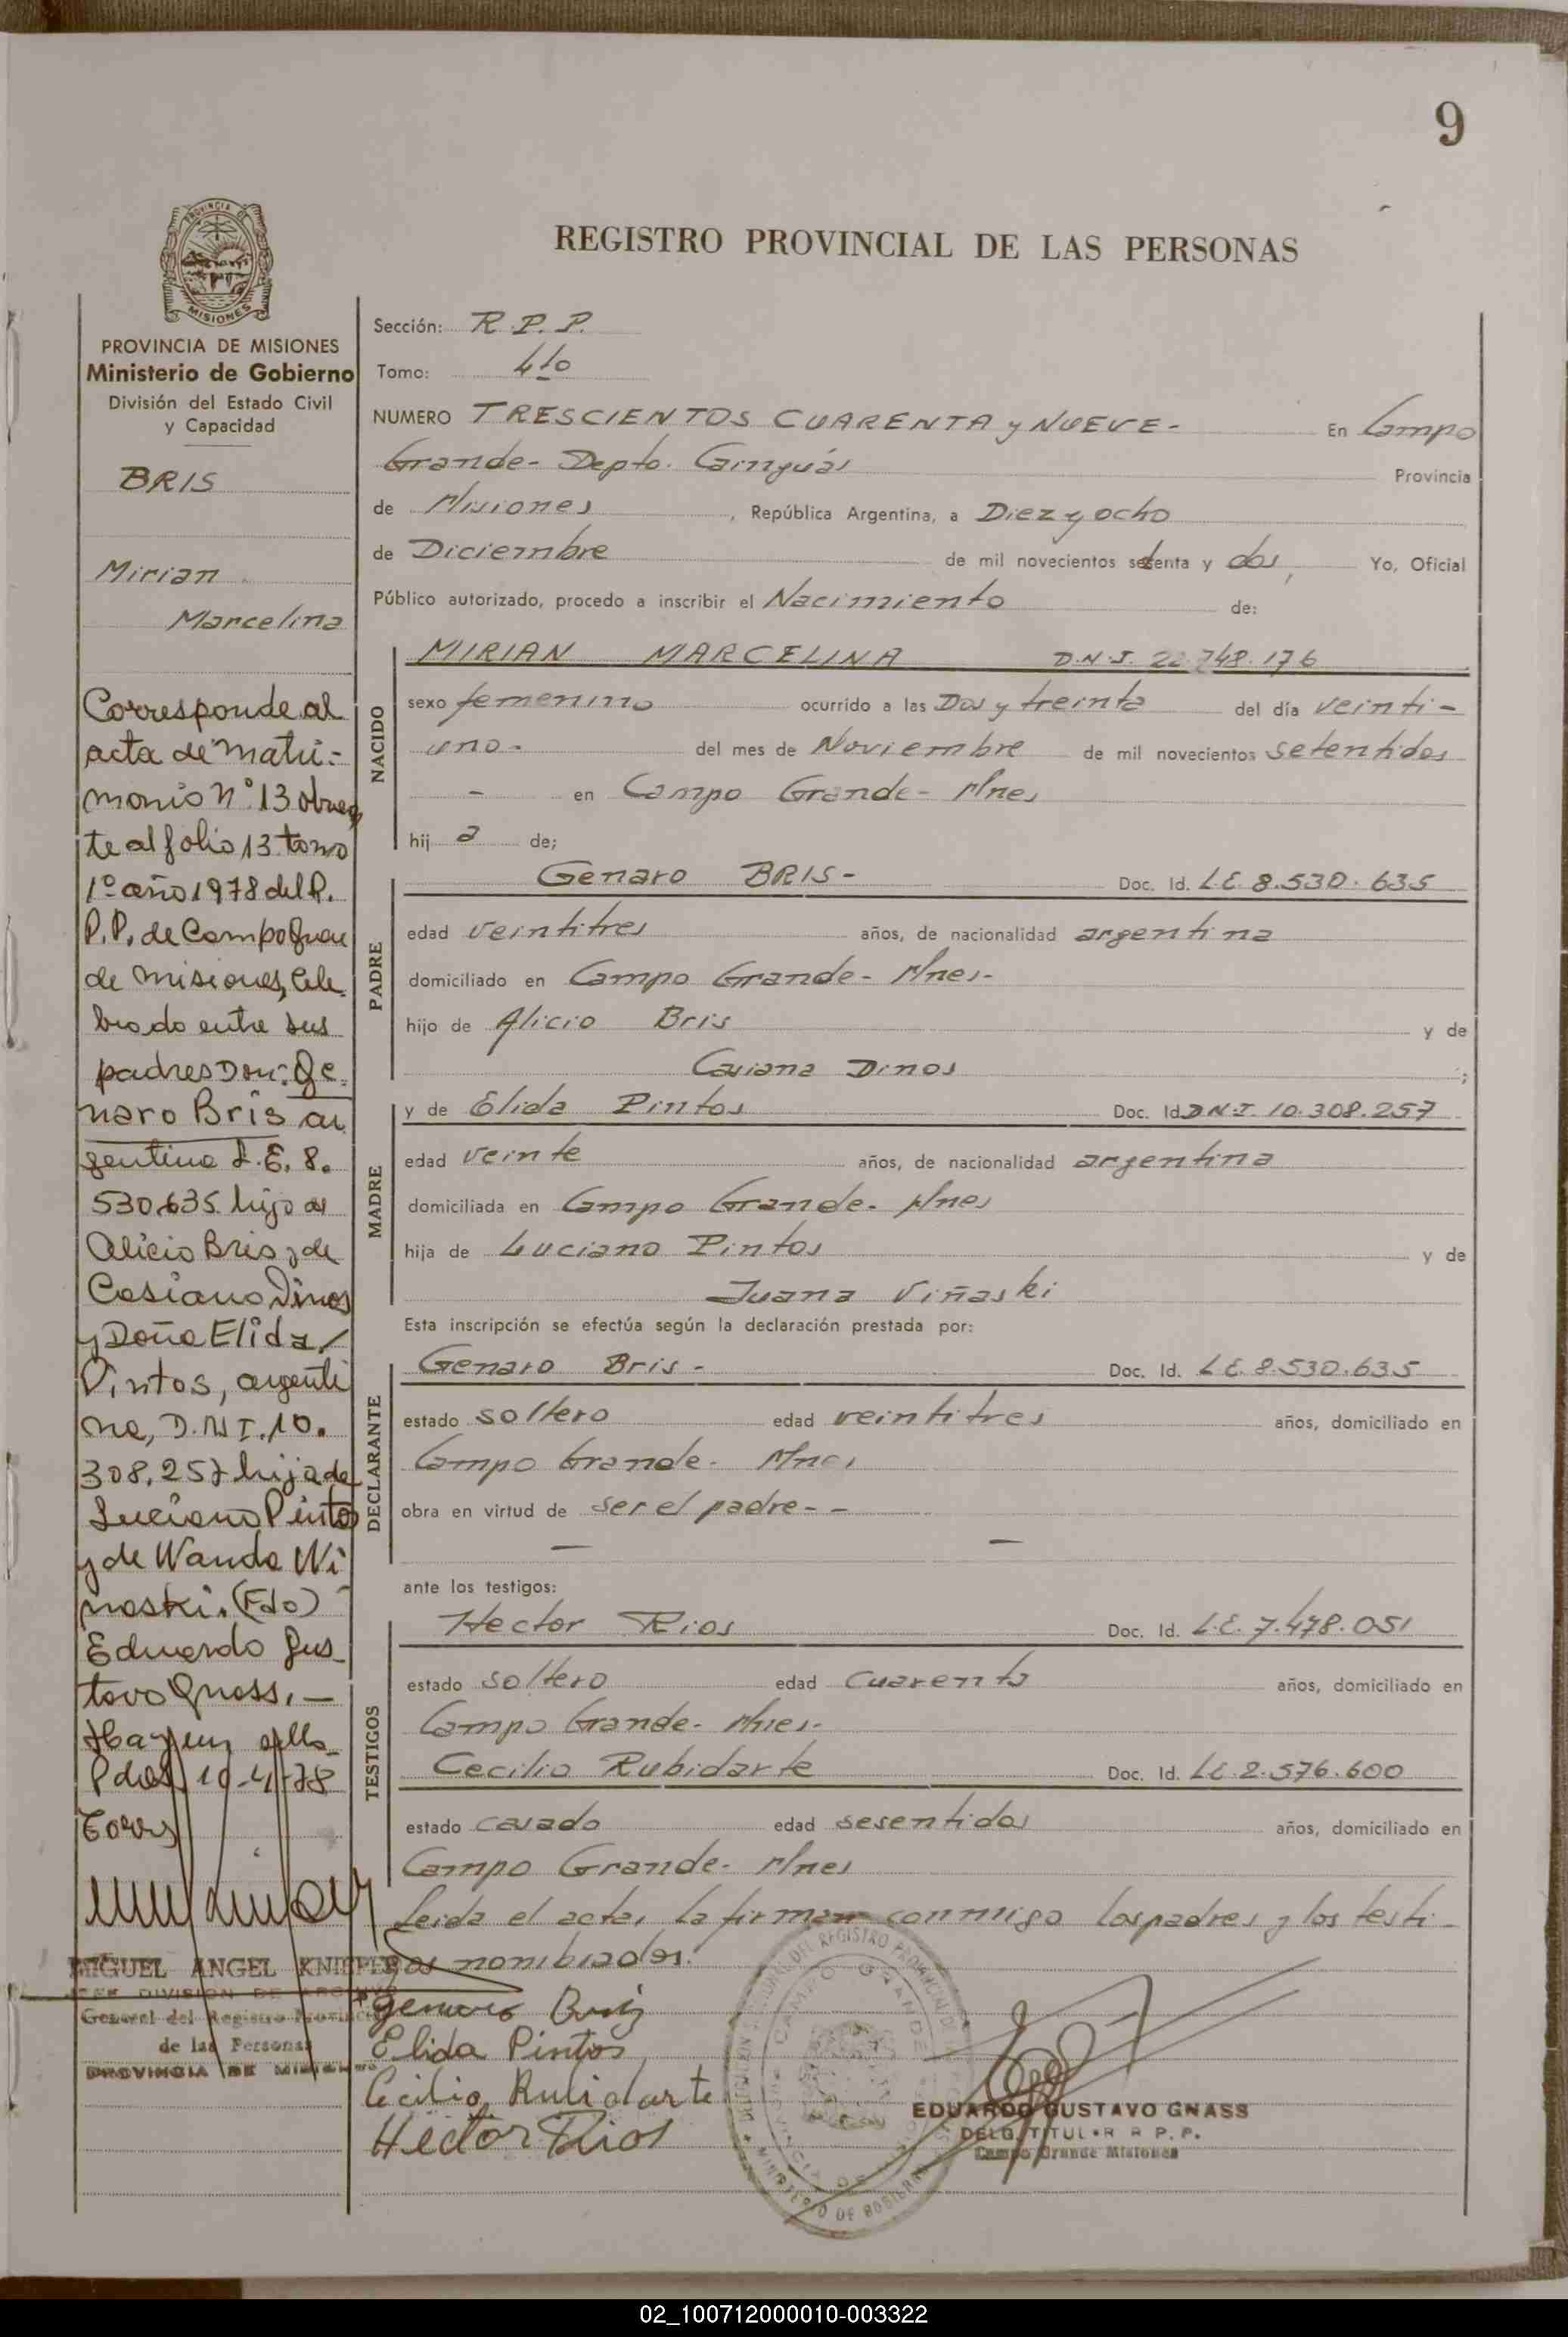 9
REGISTRO PROVINCIAL DE LAS PERSONAS
PROVINCIA DE
MISIONES
PROVINCIA DE MISIONES
Ministerio de Gobierno
División del Estado Civil
y Capacidad
BRIS
Mirian
Marcelina
Corresponde al
acta de matri-
monio n° 13 obran
te al folio 13 tomo
1° año 1978 del R.
P.P. de Campo Gran
de Misiones, Cele-
brado entre sus
padres Don: Ge-
naro Bris ar
gentino L.E. 8.
530.635 hijo de
Alicio Bris y de
Casiano Dinos
y Doña Elida
Pintos, argenti
na, D.N.I. 10.
308.257 hija de
Luciano Pintos
y de Wanda Wi
naski. (Fdo)
Eduardo Gus_
tavo Gnass. —
Hay un sello
Pdas. 10-4-78
MIGUEL ANGEL KNIEPER
JEFE DIVISION DE ARCHIVO
General del Registro Provincial
de las Personas
PROVINCIA DE MISIONES
Sección: R.P.P.
Tomo: 4to
NUMERO TRESCIENTOS CUARENTA y NUEVE- En Campo
Grande- Depto. Cainguás Provincia
de Misiones, República Argentina, a Diez y ocho
de Diciembre de mil novecientos setenta y dos, Yo, Oficial
Público autorizado, procedo a inscribir el Nacimiento de:
NACIDO
MIRIAN MARCELINA D.N.I. 22.748.176
sexo femenino ocurrido a las Dos y treinta del día veinti-
uno- del mes de Noviembre de mil novecientos setentidos
- en Campo Grande- Mnes
hij a de;
PADRE
Genaro BRIS- Doc. Id. L.E. 8.530.635
edad veintitres años, de nacionalidad argentina
domiciliado en Campo Grande- Mnes-
hijo de Alicio Bris y de
Casiana Dinos ;
MADRE
y de Elida Pintos Doc. Id D.N.I. 10.308.257
edad veinte años, de nacionalidad argentina
domiciliada en Campo Grande- Mnes
hija de Luciano Pintos y de
Juana Viñaski
Esta inscripción se efectúa según la declaración prestada por:
DECLARANTE
Genaro Bris- Doc. Id. L.E. 8.530.635
estado soltero edad veintitres años, domiciliado en
Campo Grande- Mnes
obra en virtud de ser el padre- -
— —
ante los testigos:
TESTIGOS
Hector Rios Doc. Id. L.E. 7.478.051
estado soltero edad cuarenta años, domiciliado en
Campo Grande- Mnes-
Cecilio Rubidarte Doc. Id. L.E. 2.576.600
estado casado edad sesentidos años, domiciliado en
Campo Grande- Mnes
Leida el acta, la firman conmigo los padres y los testi-
gos nombrados.
Elida Pintos
Cecilio Rubidarte
Hector Rios
CAMPO GRANDE
MINISTERIO DE GOBIERNO
EDUARDO GUSTAVO GNASS
DELG. TITULAR R.P.P.
Campo Grande Misiones
02_100712000010-003322